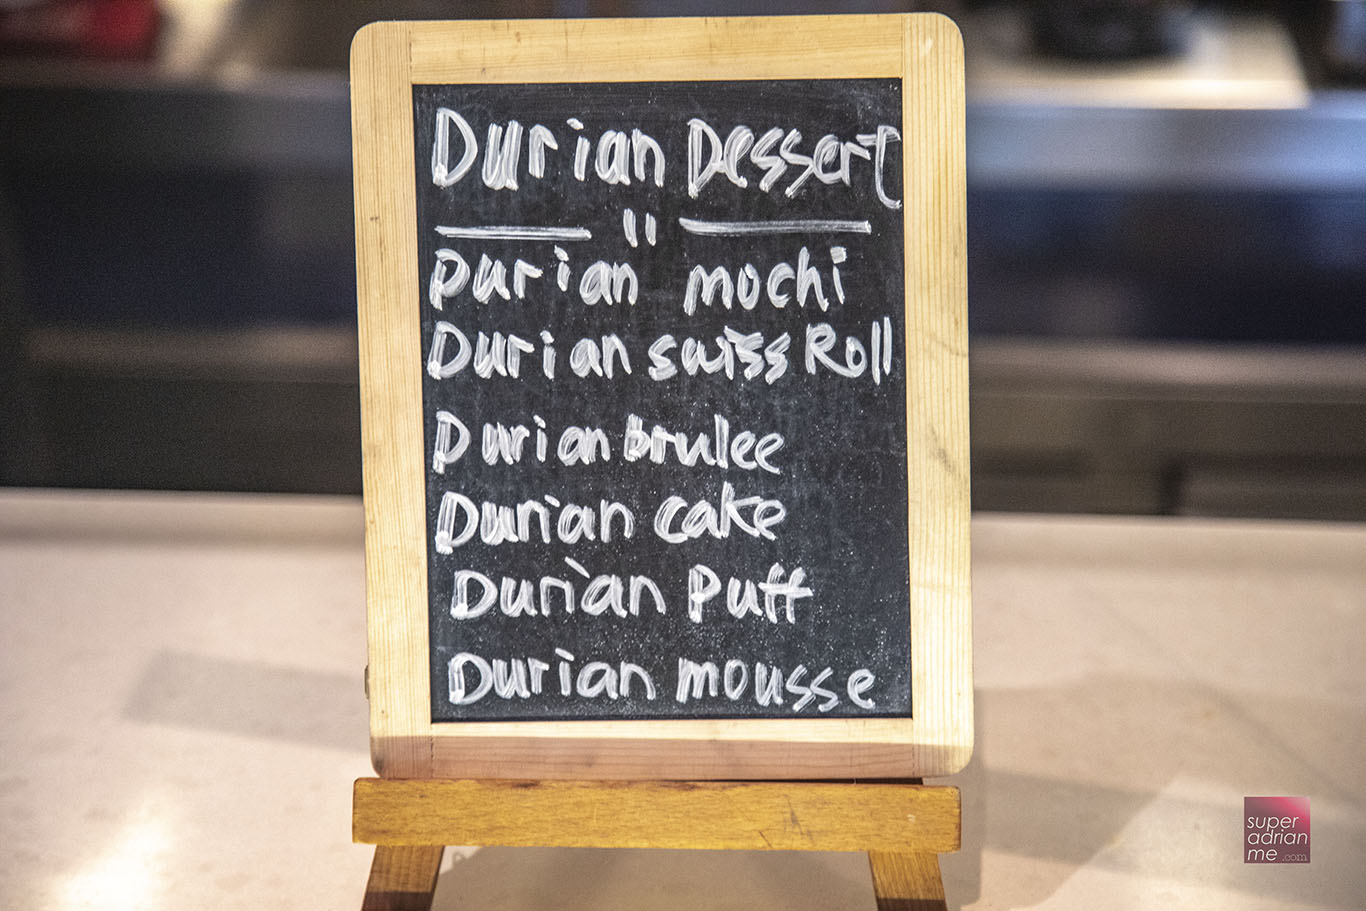 Durian Dessert
Durian mochi
Durian swiss Roll
Durian brulee
Durian cake
Durian Puff
Durian mousse
super
adrian
me .com